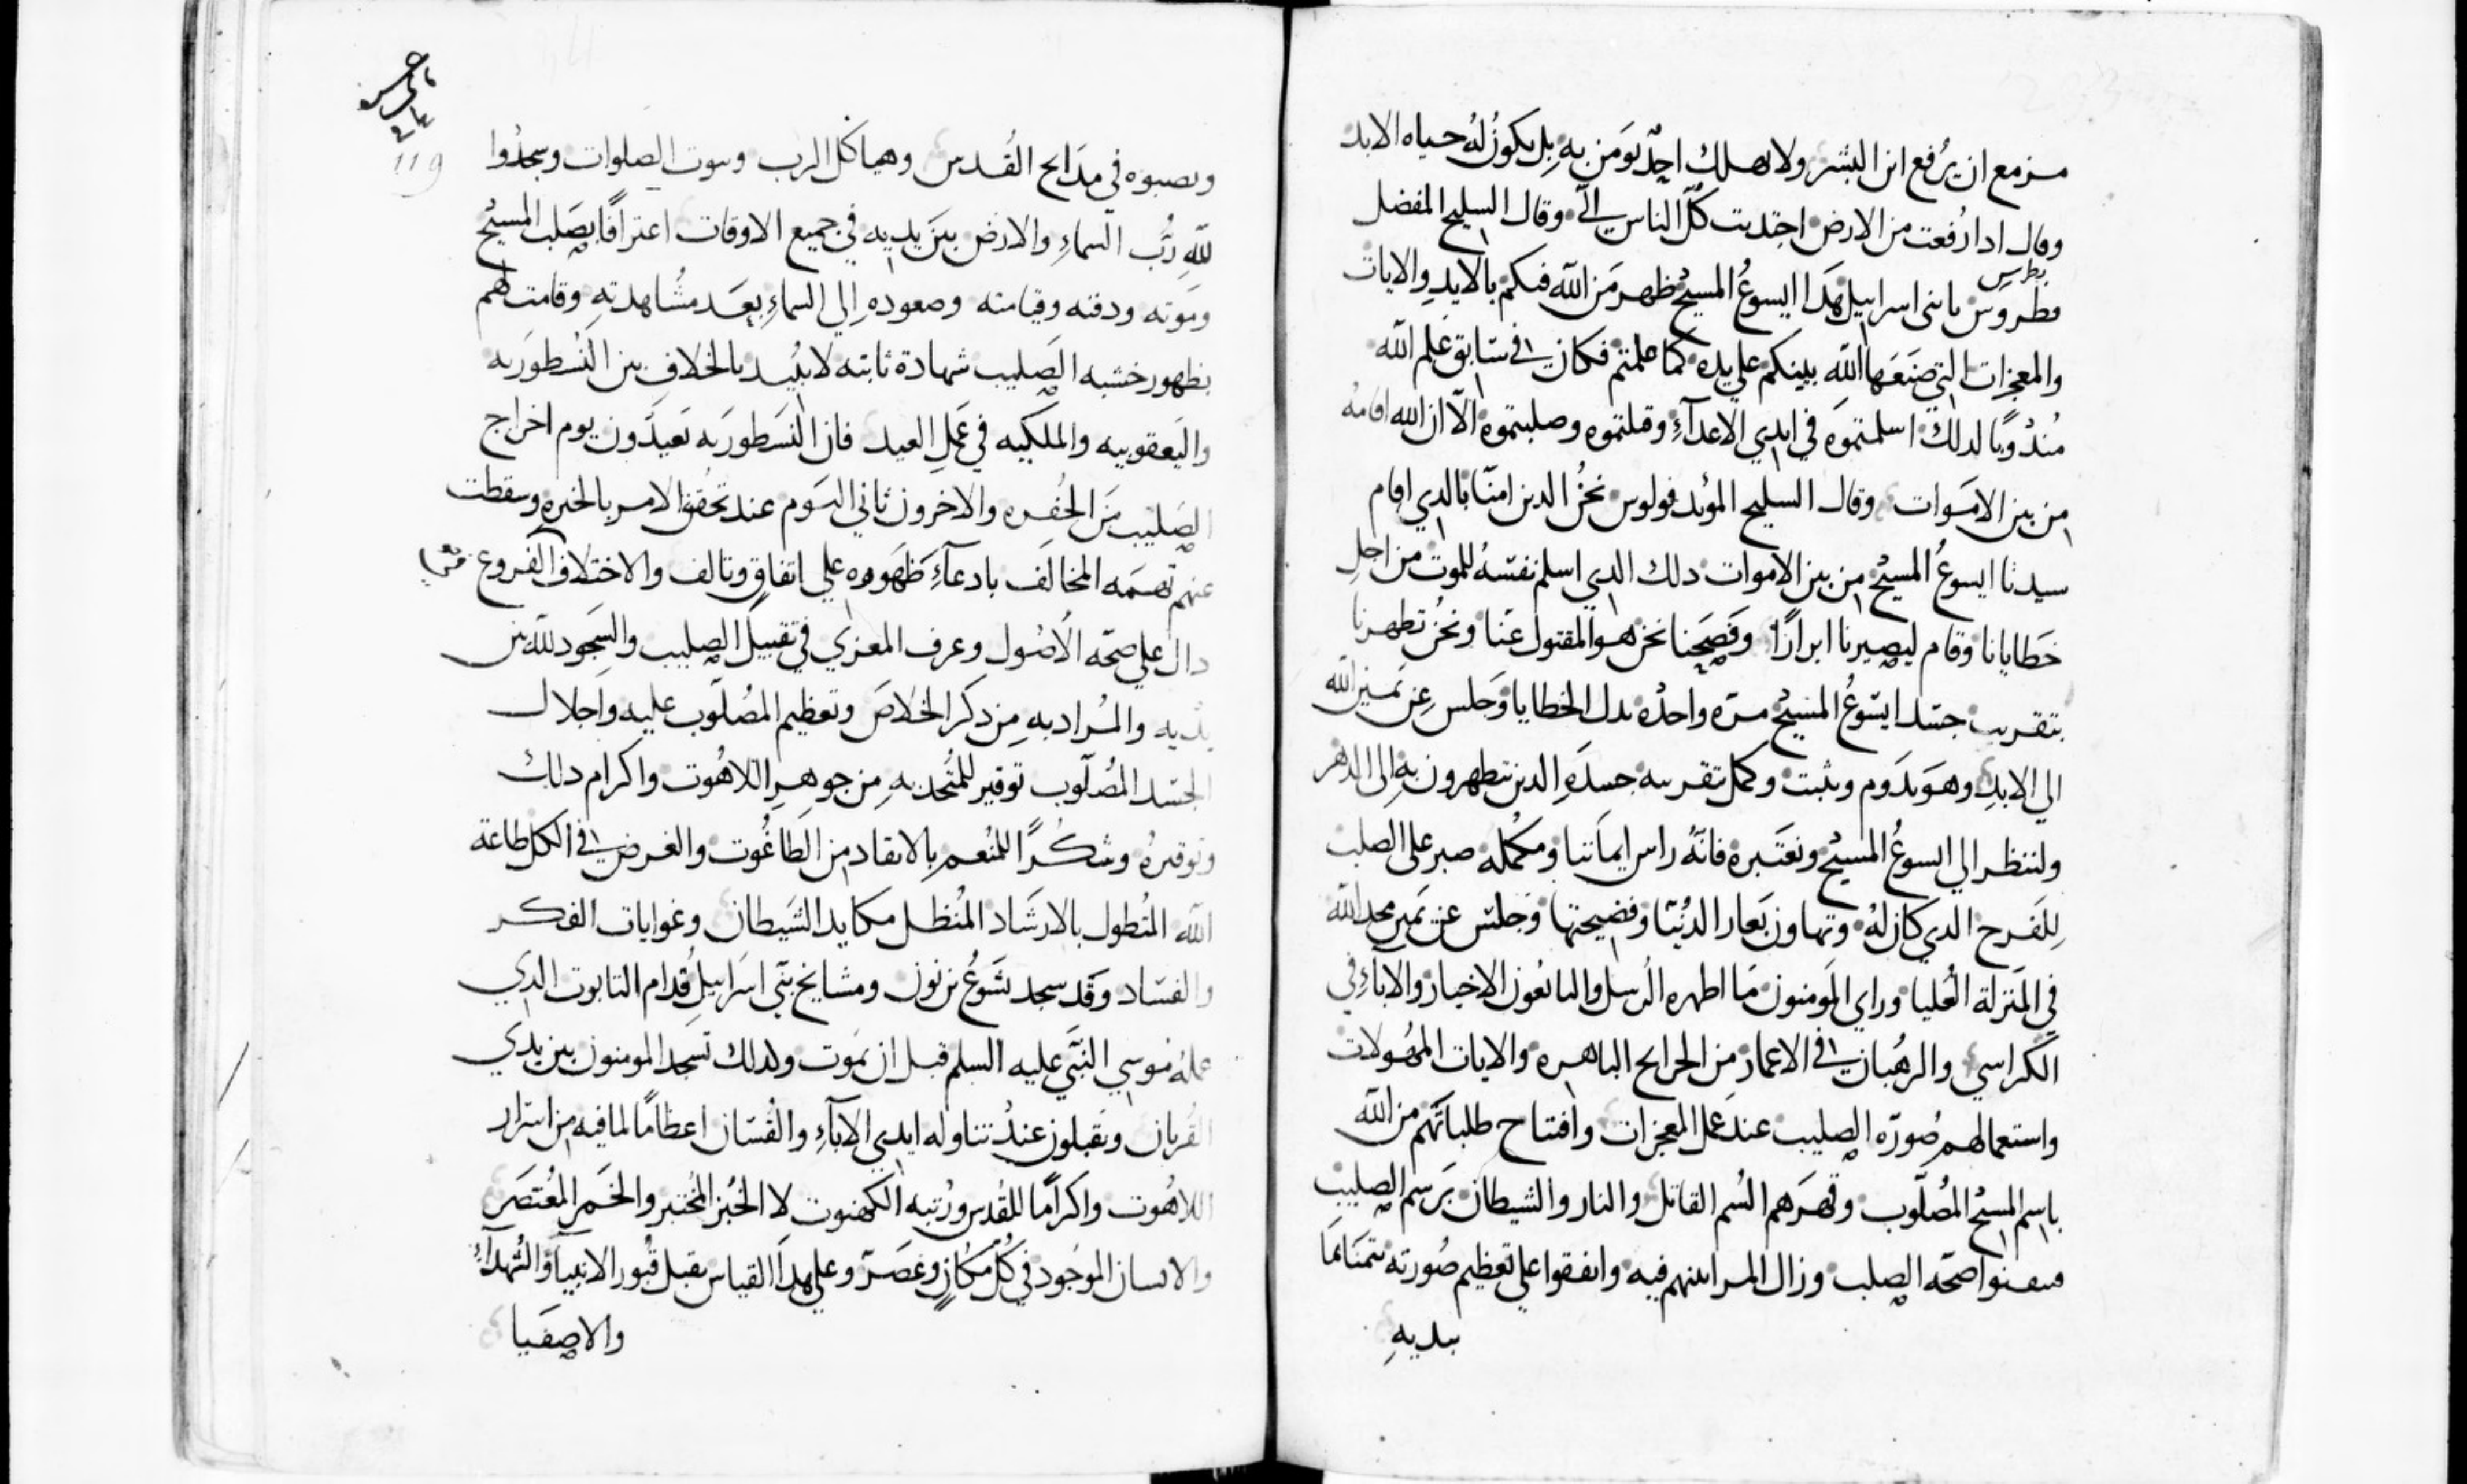 مزمع ان يرفع ابن البشر ولا يهلك احد يومن به بل يكون له حياه الابد
وقال ادا رفعت من الارض اجتدبت كل الناس الي وقال السليح المفضل
بطرس
فطروس يا بني اسراييل هدا ايسوع المسيح ظهر من الله فيكم بالايد والايات
والمعجزات التي صنعها الله بينكم علي يده كما علمتم فكان في سابق علم الله
مندوبًا لدلك اسلمتموه في ايدي الاعدآء وقتلتموه وصلبتموه الا ان الله اقامه
من بين الاموات وقال السليح المويد فولوس نحن الدين امنا بالدي اقام
سيدنا ايسوع المسيح من بين الاموات دلك الدي اسلم نفسه للموت من اجل
خطايانا وقام ليصيرنا ابرارًا وفصحنا نحن هو المقتول عنا ونحن تطهرنا
بتقريب جسد ايسوع المسيح مره واحده بدل الخطايا وجلس عن يمين الله
الي الابد وهو يدوم ويثبت وكمل بتقريبه جسده الدين يتطهرون به الى الدهر
ولننظر الي ايسوع المسيح ونعتبره فانه راس ايماننا ومكمله صبر على الصلب
للفرح الدي كان له وتهاون بعار الدنيا وفضيحتها وجلس عن يمين مجد الله
في المنزلة العليا وراي المومنون ما اظهره الرسل والتابعون الاخيار والابآء في
الكراسي والرهبان في الاعمار من الجرايح الباهره والايات المهولات
واستعمالهم صورة الصليب عند عمل المعجزات وافتتاح طلباتهم من الله
باسم المسيح المصلوب وقهرهم السم القاتل والنار والشيطان برسم الصليب
فتيقنوا صحة الصلب وزال المرا بينهم فيه واتفقوا علي تعظيم صورته تيمنا بما
بيديه
119
ونصبوه في مدابح القدس وهياكل الرب وبيوت الصلوات وسجدوا
لله رب السماء والارض بين يديه في جميع الاوقات اعترافًا بصلب المسيح
وموته ودفنه وقيامته وصعوده الي السماء بعد مشاهدته وقامت لهم
بظهور خشبه الصليب شهادة ثابته لا تبيد بالخلاف بين النسطوريه
واليعقوبيه والملكيه في عمل العيد فان النسطوريه تعيدون يوم اخراج
الصليب من الحفره والاخرون ثاني اليوم عند تحقق الامر بالخبره وسقطت
عنهم تهمه المخالف بادعآء ظهوره علي اتفاق وتالف والاختلاف الفروع
دال علي صحه الاصول وعرف المعزي في تقبيل الصليب والسجود لله بين
يديه والمراد به من دكر الخلاص وتعظيم المصلوب عليه واجلال
الجسد المصلوب توقير للمتحد به من جوهر اللاهوت واكرام دلك
وتوقيره وشكرًا للمنعم بالانقاد من الطاغوت والغرض في الكل طاعة
الله المتطول بالارشاد المبطل مكايد الشيطان وغوايات الفكر
والفساد وقد سجد يشوع بن نون ومشايخ بني اسراييل قدام التابوت الدي
عمله موسي النبي عليه السلم قبل ان يموت ولدلك تسجد المومنون بين يدي
القربان ويقبلون عند تناوله ايدي الابآء والقسان اعظامًا لما فيه من اسرار
اللاهوت واكرامًا للقدس ورتبه الكهنوت لا الخبز المختبر والخمر المعتصر
والانسان الموجود في كل مكان وعصر وعلي هدا القياس يقبل قبور الانبيا والشهدآء
والاصفيا